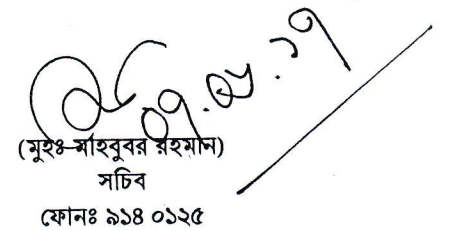 ০৭.০৮.১৭
(মুহঃ মাহবুবর রহমান)
সচিব
ফোনঃ ৯১৪ ০১২৫